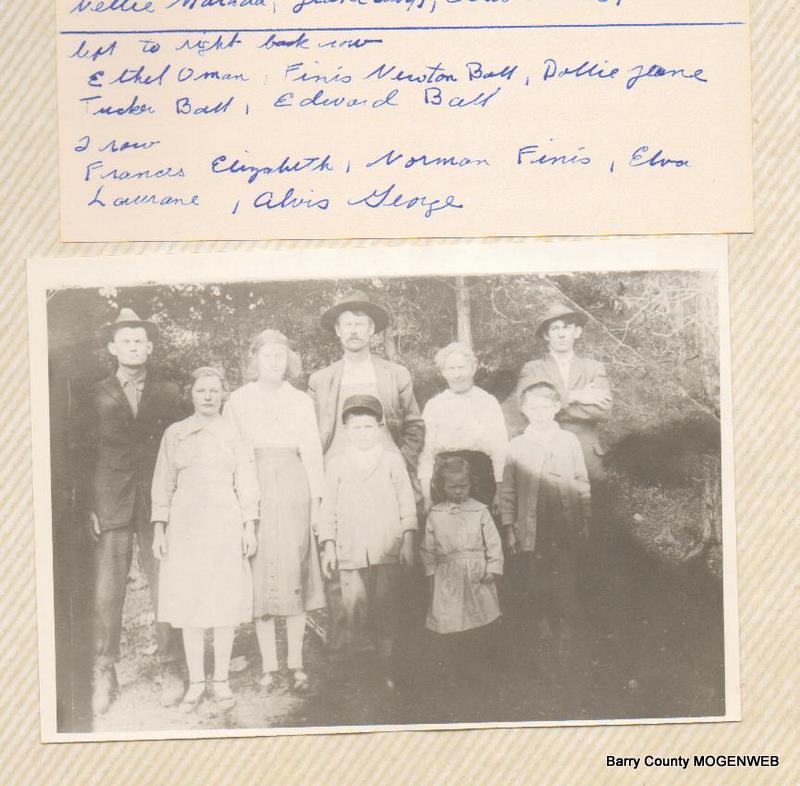 Nellie
left to right back row
Ethel Oman, Finis Newton Ball, Dollie Jane
Tucker Ball, Edward Ball
2 row
Frances Elizabeth, Norman Finis, Elva
Laurane, Alvis George
Barry County MOGENWEB